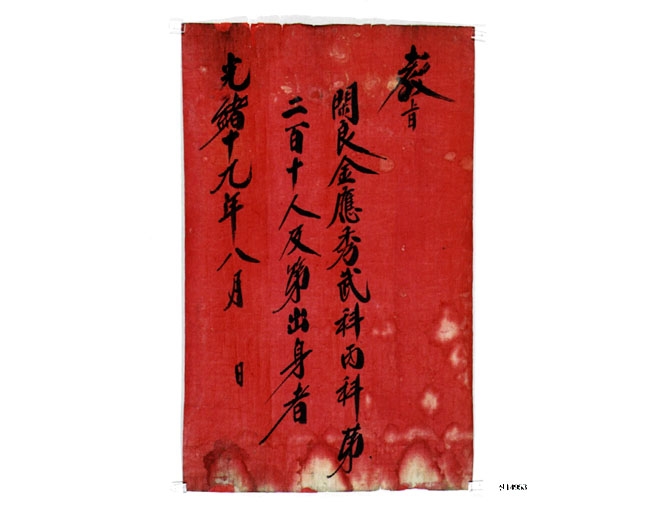 敎旨
閑良金應秀武科丙科第
二百十人及第出身者
光緖十九年八月　日